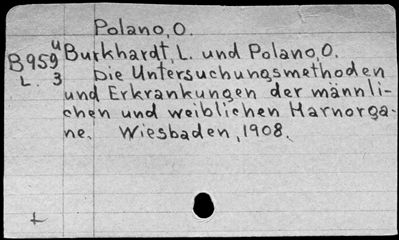 Polano, O.
B959u Burkhardt, L. und Polano, O.
L. 3 Die Untersuchungsmethoden
und Erkrankungen der männli-
chen und weiblichen Harnorga-
ne. Wiesbaden, 1908.